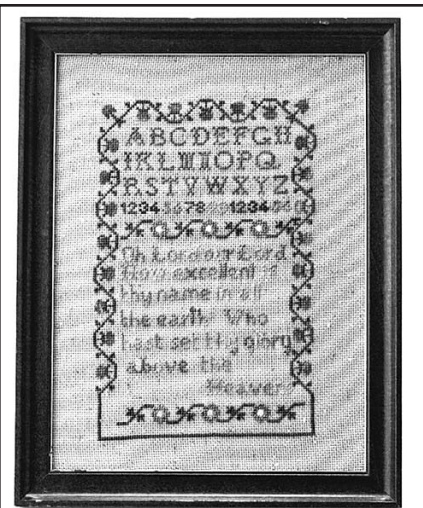 ABCDEFGH
IKLMNOPQ
RSTVWXYZ
1234 5678 1234 56
Oh Lord our Lord
How excellent is
thy name in all
the earth Who
hast set thy glory
above the
Heaven